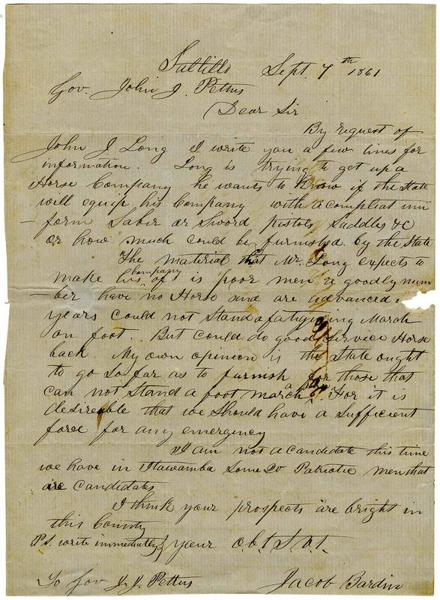 Saltillo Sept 7th 1861
Gov. John J. Pettus
Dear Sir
By request of
John J Long I write you a few lines for
information. Long is trying to get up a
Horse Company he wants to know if the State
will equip his Company with a compleat uni
form Saber or Sword pistols Saddles &C
or how much could be furnished by the State
The material that Mr. Long expects to
make his company of is poor men a goodly num
ber have no Horse and are advanced in
years could not stand a fatiguing March
on foot. But could do good Service Horse
back. My own opinion is the State ought
to go so far as to furnish for those that
can not Stand a foot march. For it is
desireable that we Should have a Sufficient
force for any emergency
I am not a Candidate this time
we have in Itawamba Some Patriotic men that
are Candidates
I think your prospects are bright in
this County
PS. write immediately your obt. Svt.
To Gov J. J. Pettus Jacob Bardin